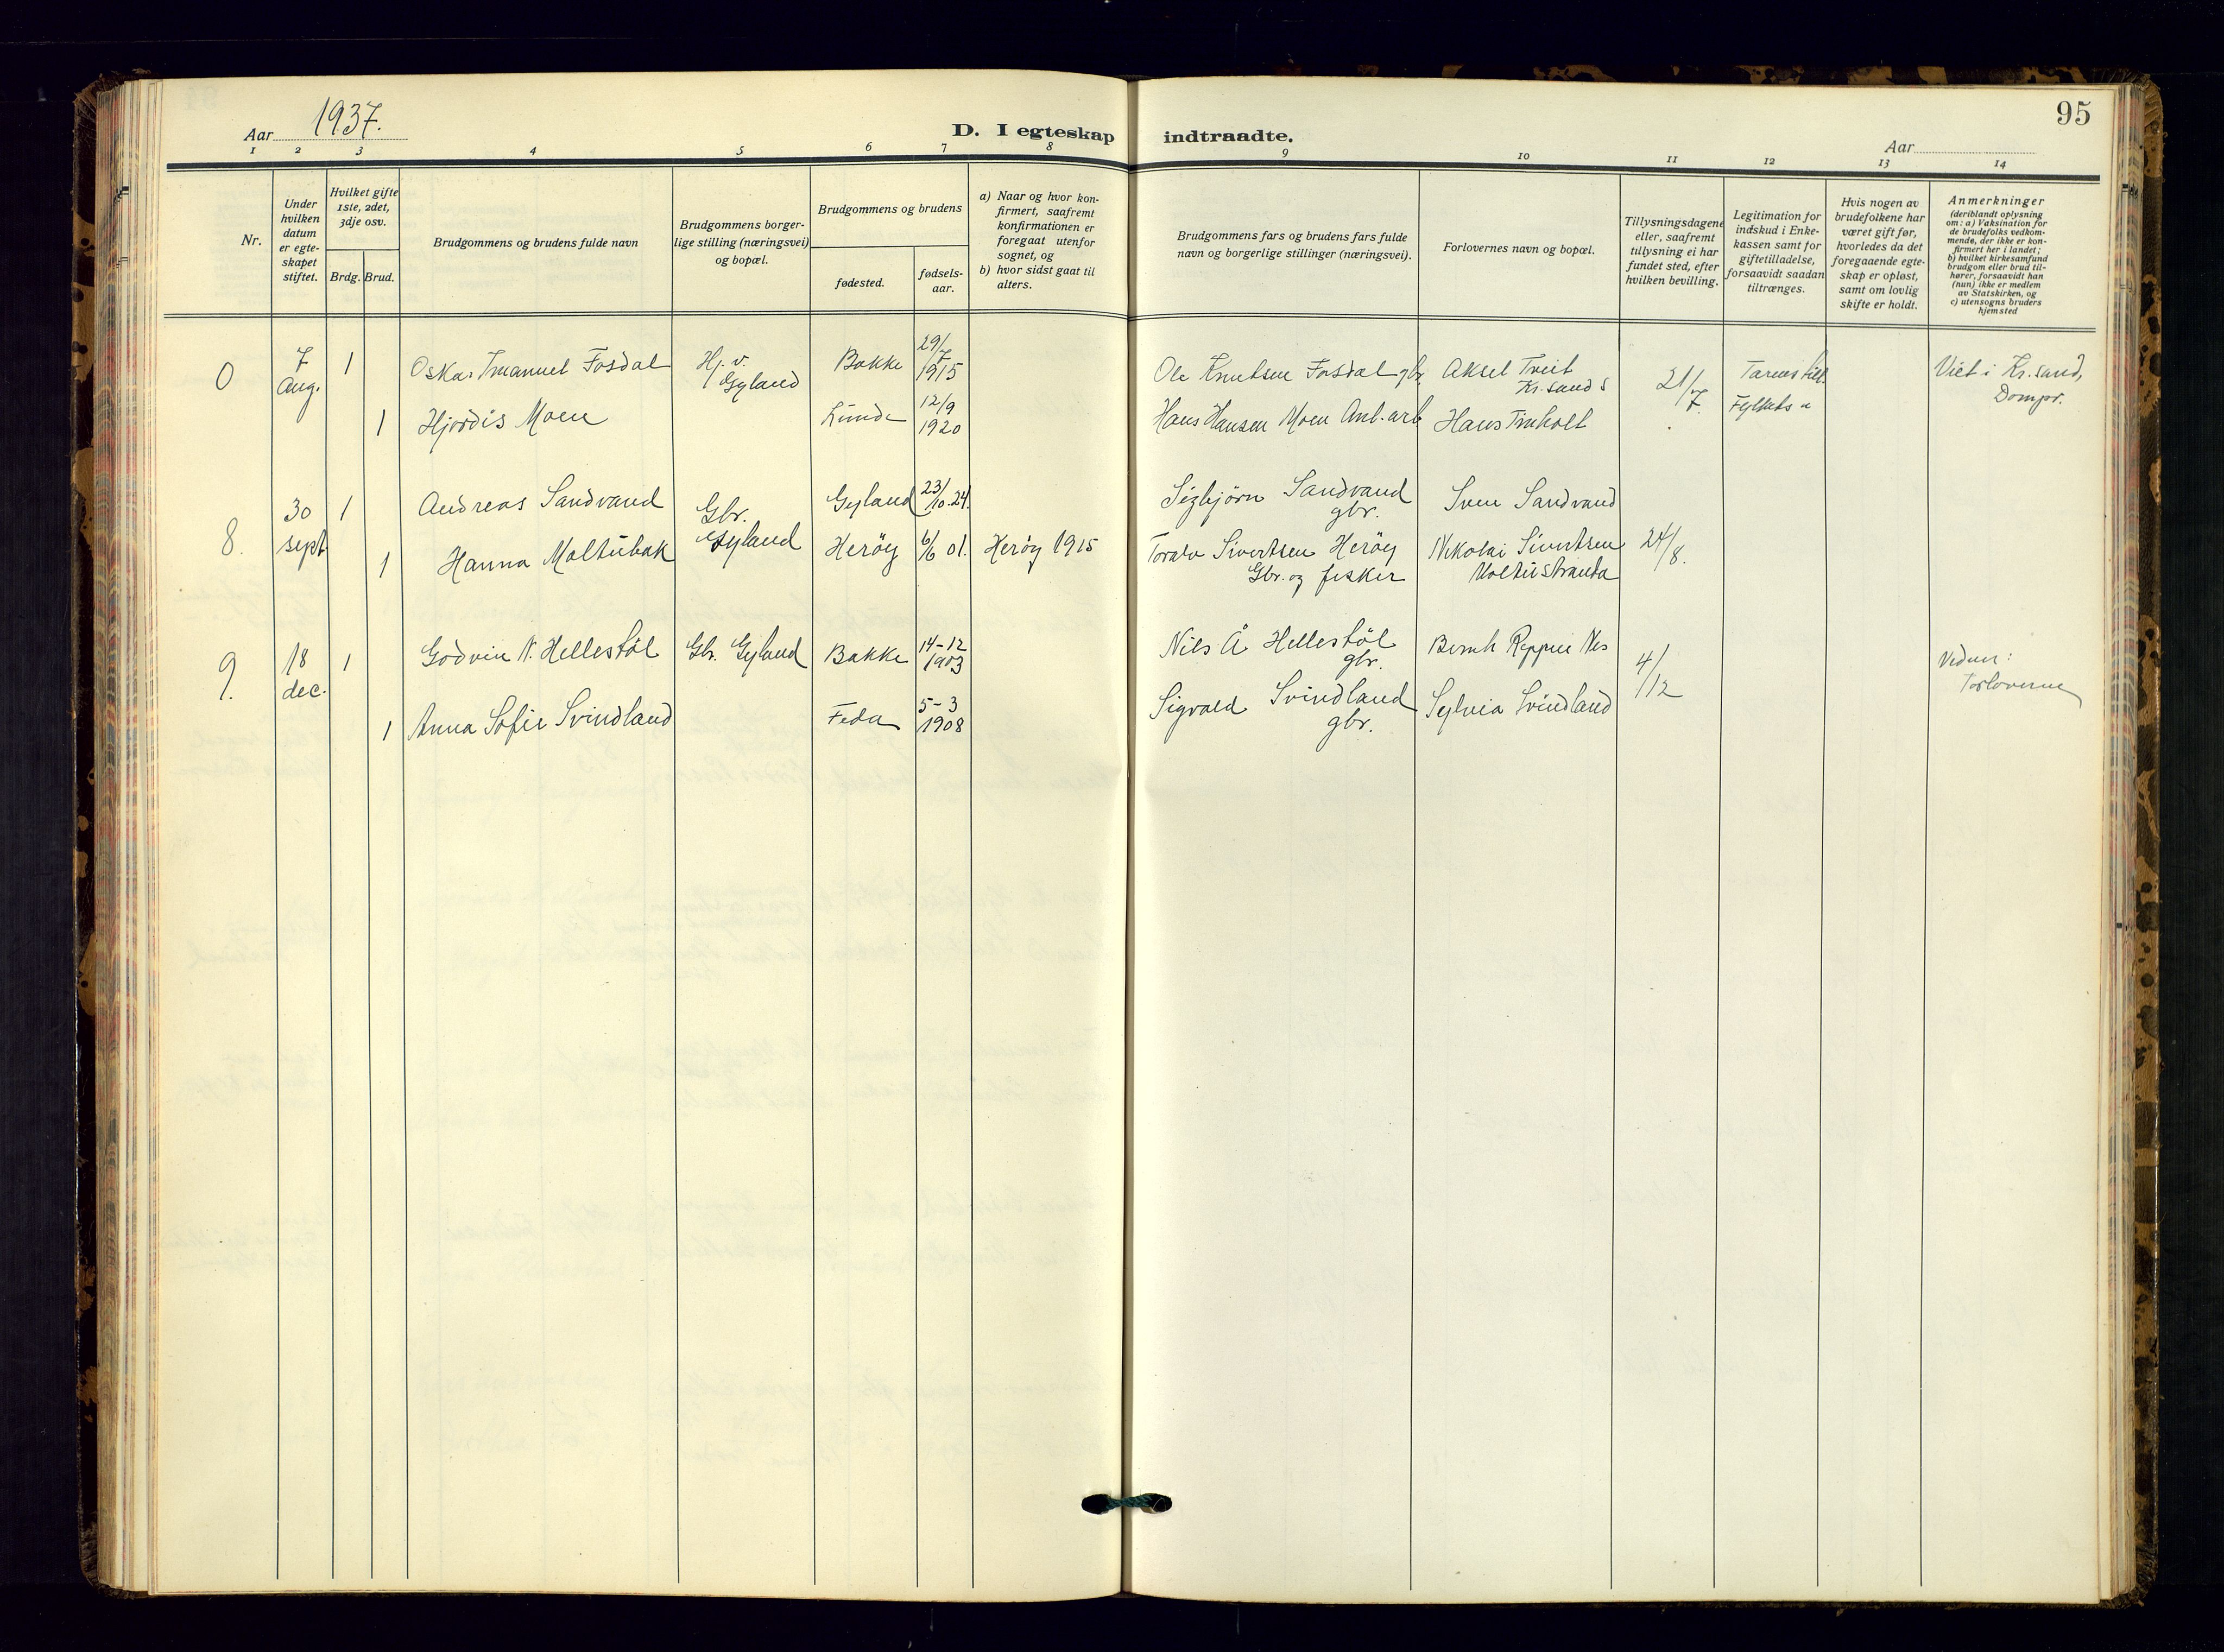 95
Aar 1937.
D. I egteskap indtraadte.
Aar
1 2 3 4 5 6 7 8 9 10 11 12 13 14
Nr.
Under
hvilken
datum
er egte-
skapet
stiftet.
Hvilket gifte
1ste, 2det,
3dje osv.
Brdg. Brud.
Brudgommens og brudens fulde navn
Brudgommens borger-
lige stilling (næringsvei)
og bopæl.
Brudgommens og brudens
fødested.
fødsels-
aar.
a) Naar og hvor kon-
firmert, saafremt
konfirmationen er
foregaat utenfor
sognet, og
b) hvor sidst gaat til
alters.
Brudgommens fars og brudens fars fulde
navn og borgerlige stillinger (næringsvei).
Forlovernes navn og bopæl.
Tillysningsdagene
eller, saafremt
tillysning ei har
fundet sted, efter
hvilken bevilling.
Legitimation for
indskud i Enke-
kassen samt for
giftetilladelse,
forsaavidt saadan
tiltrænges.
Hvis nogen av
brudefolkene har
været gift før,
hvorledes da det
foregaaende egte-
skap er opløst,
samt om lovlig
skifte er holdt.
Anmerkninger
(deriblandt oplysning
om: a) Vaksination for
de brudefolks vedkom-
mende, der ikke er kon-
firmert her i landet;
b) hvilket kirkesamfund
brudgom eller brud til-
hører, forsaavidt han
(hun) ikke er medlem
av Statskirken, og
c) utensogns bruders
hjemsted
0 7 Aug. 1 Oskar Imanuel Fosdal Hj. v. Gyland Bakke 29/7 1915 Ole Knutsen Fosdal gbr. Aksel Tveit Kr.sand S 21/7. Viet i Kr.sand, Dompr.
1 Hjördis Moen Lunde 12/9 1920 Hans Hansen Moen Anl. arb. Hans
8. 30 sept 1 Andreas Sandvand Gbr. Gyland Gyland 23/10-24. Sigbjörn Sandvand gbr. Sven Sandvand 24/8.
1 Hanna Moltubak Heröy 6/6 01. Heröy 1915 Toralv Sivertsen Heröy Gbr. og fisker Nikolai Sivertsen Moltustranda
9. 18 dec. 1 Godvin N. Hellestöl Gbr. Gyland Bakke 14-12 1903 Nils Å Hellestöl gbr. Bernh Reppen Nes 4/12 Vidner: Forloverne
1 Anna Sofie Svindland Feda 5-3 1908 Sigvald Svindland gbr. Sylvia Svindland